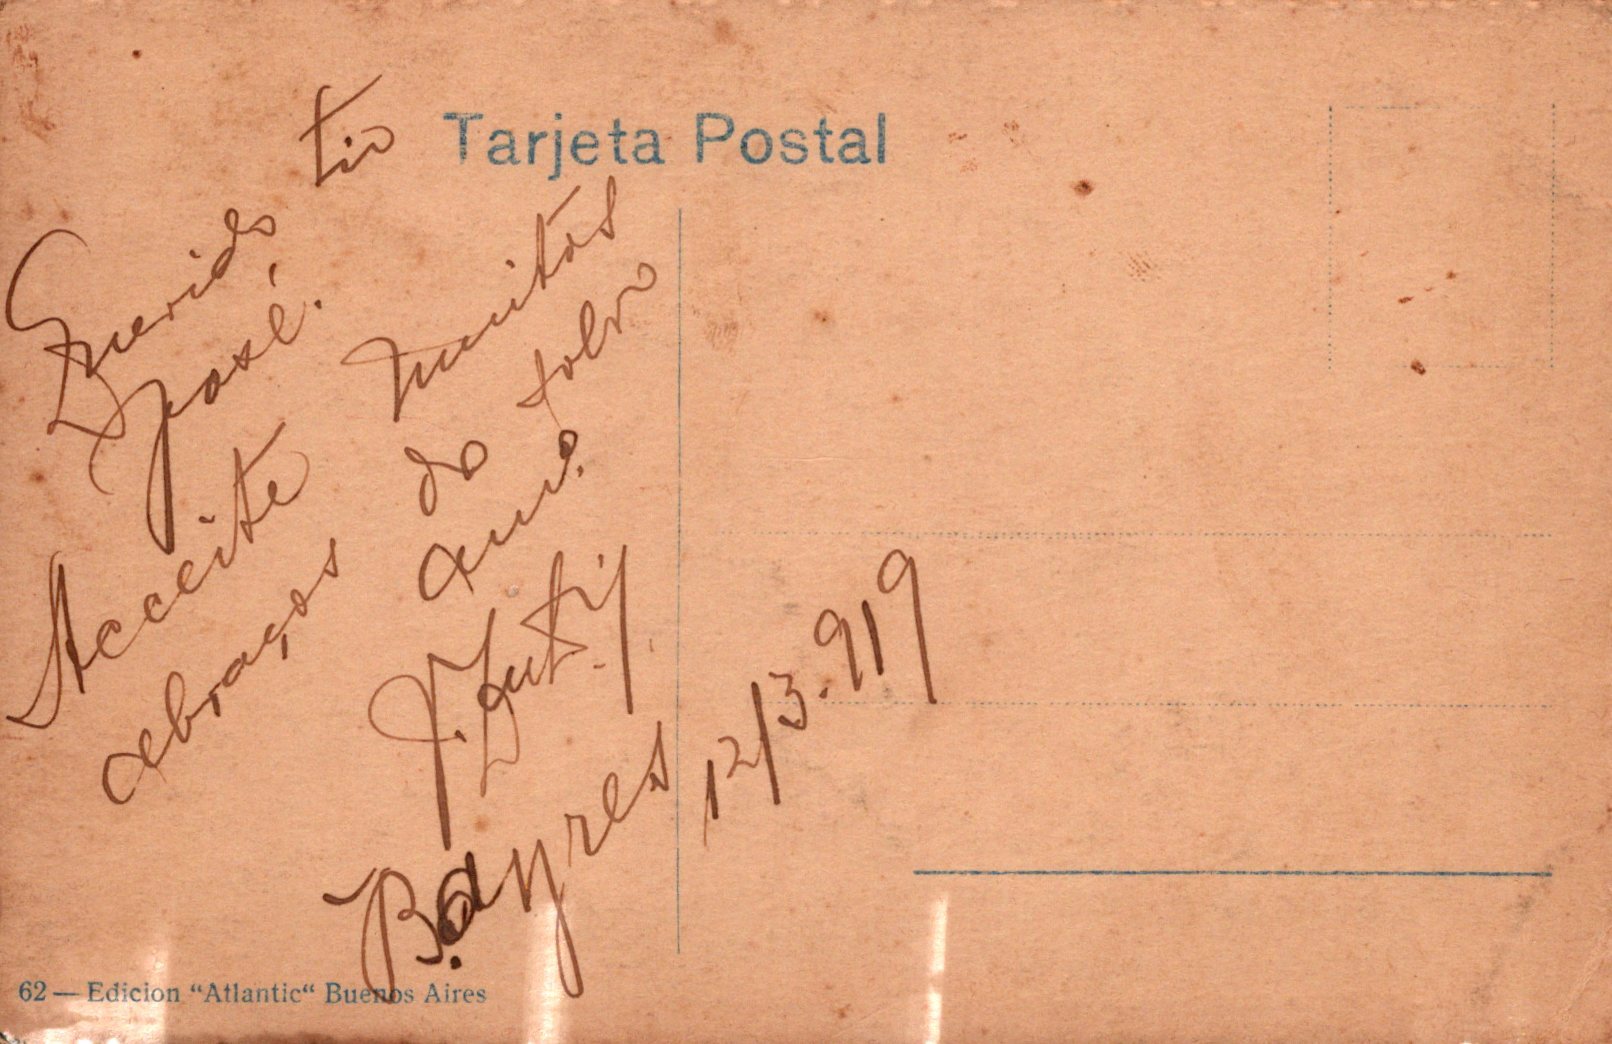 Tarjeta Postal
Querido tio
José.
Acceite muitos
abraços do sobro
am.º
J. 
B. ayres 12/3.919
62 — Edicion “Atlantic“ Buenos Aires